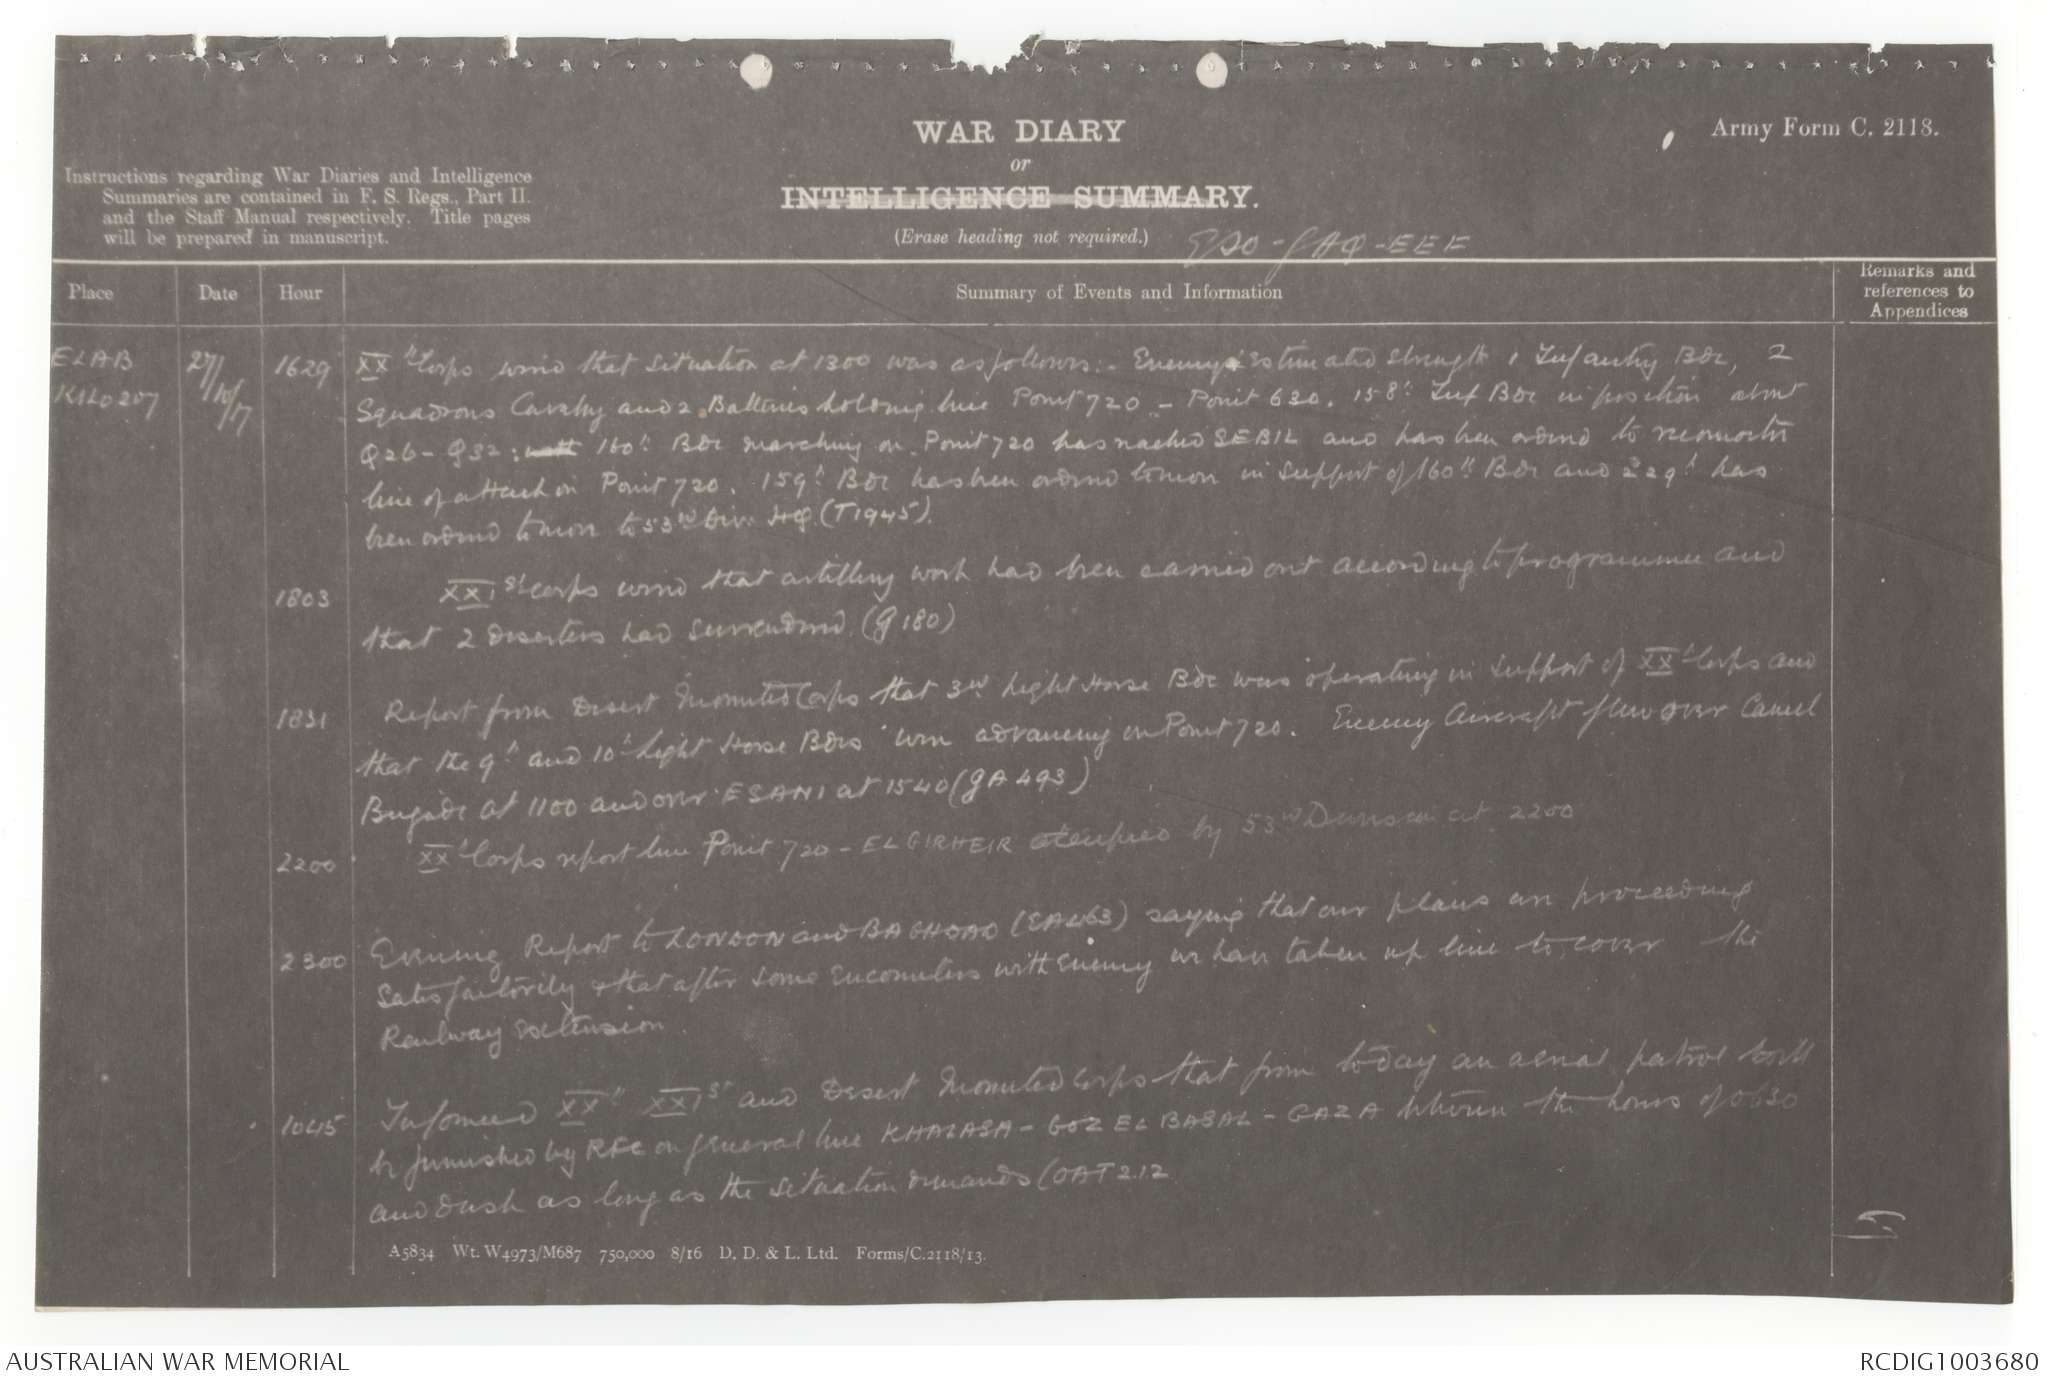 WAR DIARY
or
INTELLIGENCE SUMMARY.
(Erase heading not required.)
Army Form C. 2118.
Instructions regarding War Diaries and Intelligence
Summaries are contained in F. S. Regs., Part II.
and the Staff Manual respectively. Title pages
will be prepared in manuscript.
GSO - GHQ - EEF
Place Date Hour Summary of Events and Information Remarks and
references to
Appendices
EL AB
KILO 207
27/10/17
1629 XXth Corps wired that situation at 1300 was as follows:- Enemy estimated strength 1 Infantry Bde, 2
Squadrons Cavalry and 2 Batteries holding line Point 720 - Point 630. 158th Inf Bde in position about
Q26 - Q32; 160th Bde marching on Point 720 has reached SEBIL and has been ordered to reconnoitre
line of attack on Point 720. 159th Bde has been ordered to move in support of 160th Bde and 229th has
been ordered to move to 53rd Div. HQ. (T1945).
1803 XXIst Corps wired that artillery work had been carried out according to programme and
that 2 deserters had surrendered. (G 180)
1831 Report from Desert Mounted Corps that 3rd Light Horse Bde was operating in support of XXth Corps and
that the 9th and 10th Light Horse Bdes were advancing on Point 720. Enemy Aircraft flew over Camel
Brigade at 1100 and over ESANI at 1540 (GA 493)
2200 XXth Corps report line Point 720 - EL GIRHEIR occupied by 53rd Division at 2200
2300 Evening Report to LONDON and BAGHDAD (EA463) saying that our plans are proceeding
satisfactorily & that after some encounters with Enemy we have taken up line to cover the
Railway extension.
1045 Informed XXth XXIst and Desert Mounted Corps that from to-day an aerial patrol will
be furnished by RFC on general line KHALASA - GOZ EL BASAL - GAZA between the hours of 0630
and dusk as long as the situation demands (OAT 212
A5834 Wt. W4973/M687 750,000 8/16 D. D. & L. Ltd. Forms/C.2118/13.
AUSTRALIAN WAR MEMORIAL
RCDIG1003680